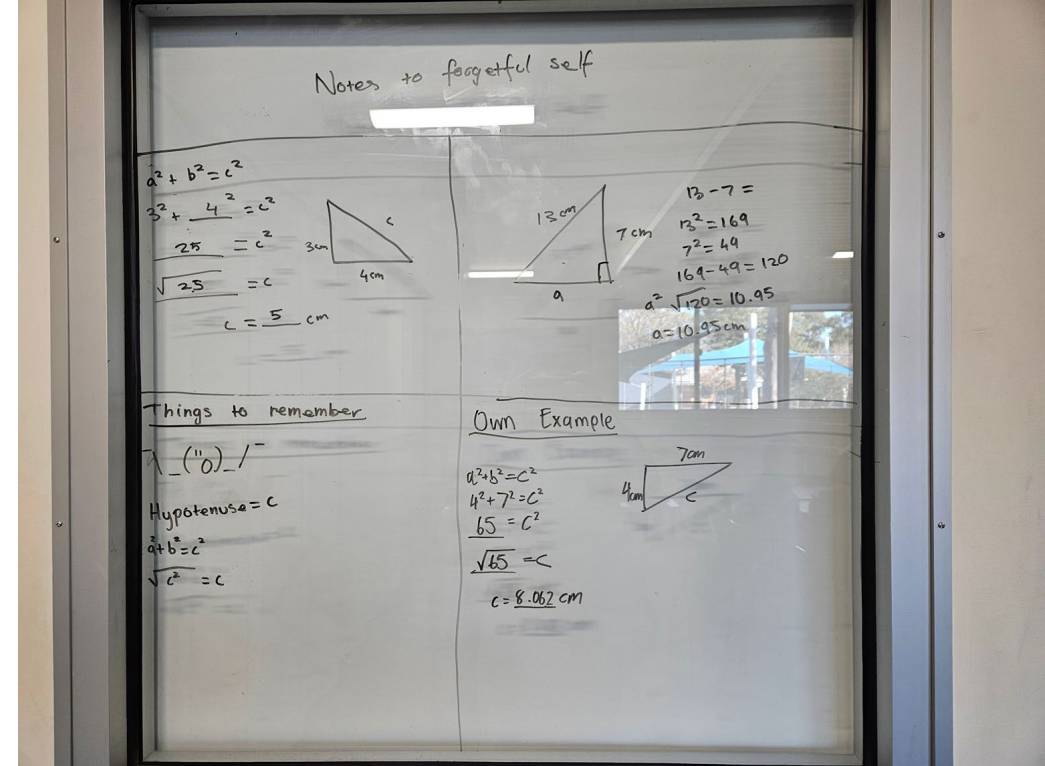 Notes to foogetful self
a² + b² = c²
3² + 4² = c²
25 = c²
√25 = c
c = 5 cm
3cm
c
4cm
13cm
7cm
a
13 - 7 =
13² = 169
7² = 49
169 - 49 = 120
a² √120 = 10.95
a = 10.95cm
Things to remember
¯\_("o)_/¯
Hypotenuse = c
a² + b² = c²
√c² = c
Own Example
a² + b² = c²
4² + 7² = c²
65 = c²
√65 = c
c = 8.062 cm
7cm
4cm
c